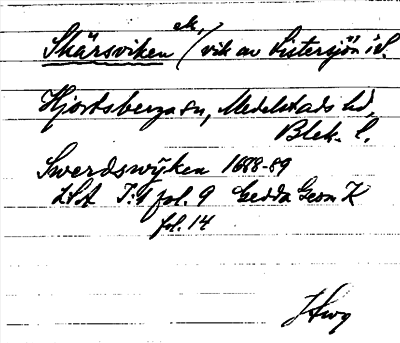 Skärsviken ek, (vik av Sistersjön i S.
Hjortsberga sn, Medelstads hd,
Blek. l.
Swerdswÿken 1688-89
LSA I:4 fol. 9 Gedda Geom K
fol. 14